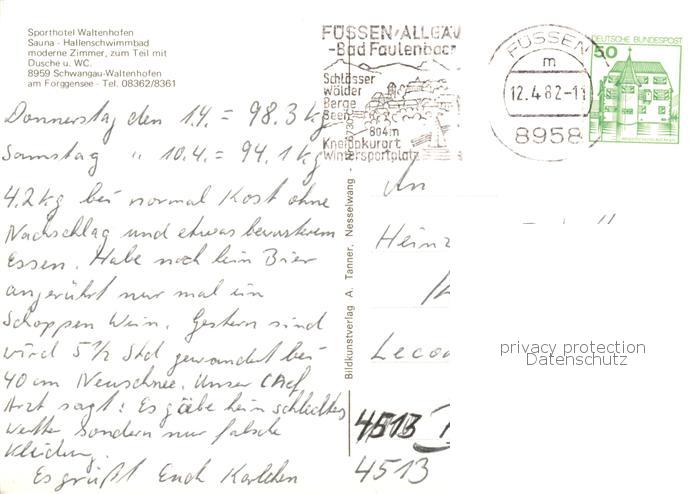 Sporthotel Waltenhofen
Sauna - Hallenschwimmbad
moderne Zimmer, zum Teil mit
Dusche u. WC.
8959 Schwangau-Waltenhofen
am Forggensee - Tel. 08362/8361
FÜSSEN/ALLGÄU
-Bad Faulenbach
Schlösser
Wälder
Berge
Seen
804m
Kneippkurort
Wintersportplatz
FÜSSEN
m
12.4.82-11
8958
DEUTSCHE BUNDESPOST
50
Donnerstag den 1.4. = 98.3 kg
Samstag " 10.4. = 94.1 kg
4.2 kg bei normal Kost ohne
Nachschlag und etwas bewusterem
Essen. Habe noch kein Bier
angerührt nur mal ein
Schoppen Wein. Gestern sind
wird 5½ Std gewandert bei
40 cm Neuschnee. Unser Chef
Arzt sagt: Es gäbe kein schlechtes
Wetter sondern nur falsche
Kleidung.
Es grüßt Euch Karlchen
Bildkunstverlag A. Tanner, Nesselwang -
An
Heinz
4513
4513
privacy protection
Datenschutz